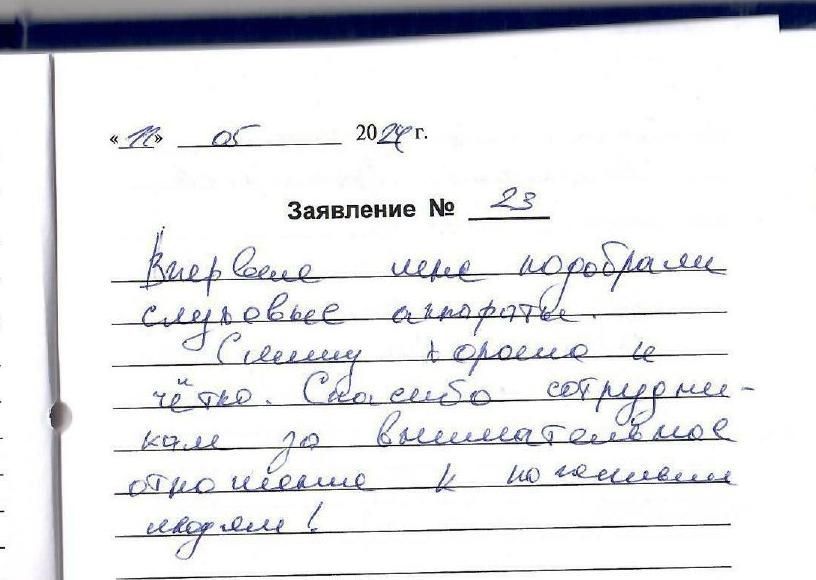 «11» 05 2024 г.
Заявление № 23
Впервые мне подобрали
слуховые аппараты.
Слышу хорошо и
чётко. Спасибо сотрудни-
кам за внимательное
отношение к пожилым
людям!